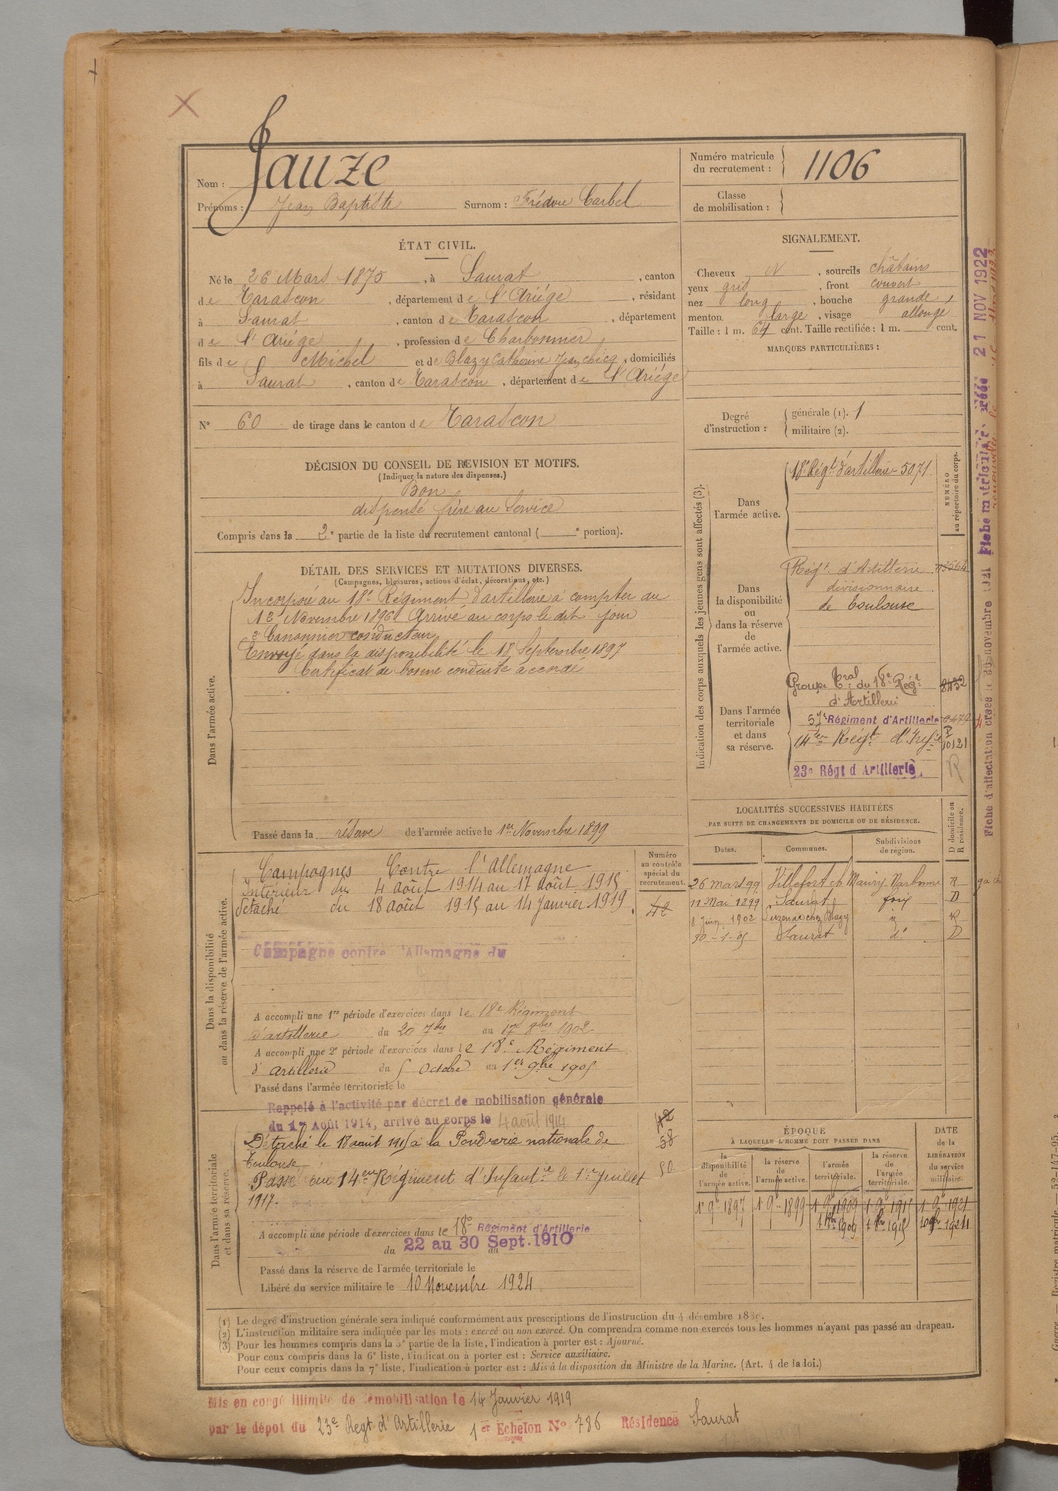 Nom : Jauze
Prénoms : Jean Baptiste Surnom : Carbel
Numéro matricule du recrutement : 1106
Classe de mobilisation :
ÉTAT CIVIL.
Né le 26 Mars 1875, à Saurat, canton
de Tarascon, département de l'Ariége, résidant
à Saurat, canton de Tarascon, département
de l'Ariége, profession de Charbonnier
fils de Michel et de Blazy Catherine, domiciliés
à Saurat, canton de Tarascon, département de l'Ariége
N° 60 de tirage dans le canton de Tarascon
DÉCISION DU CONSEIL DE REVISION ET MOTIFS.
(Indiquer la nature des dispenses.)
Bon
dispensé frère au Service
Compris dans la 2e partie de la liste du recrutement cantonal ( e portion).
DÉTAIL DES SERVICES ET MUTATIONS DIVERSES.
(Campagnes, blessures, actions d'éclat, décorations, etc.)
Dans l'armée active.
Incorporé au 18e Régiment d'artillerie à compter du
12 Novembre 1896 Arrivé au corps le dit jour
2e Canonnier conducteur
Envoyé dans la disponibilité le 18 Septembre 1897
Certificat de bonne conduite accordé
Passé dans la réserve de l'armée active le 1er Novembre 1899
SIGNALEMENT.
Cheveux N, sourcils châtains
yeux gris, front couvert
nez long, bouche grande,
menton large, visage allongé
Taille : 1 m. 64 cent. Taille rectifiée : 1 m. cent.
MARQUES PARTICULIÈRES :
Degré d'instruction : générale (1). 1
militaire (2).
Indication des corps auxquels les jeunes gens sont affectés (3).
NUMÉRO au répertoire du corps.
Dans l'armée active.
18e Régt d'artillerie 5071
Dans la disponibilité ou dans la réserve de l'armée active.
Régt d'Artillerie
divisionnaire
de Toulouse
Dans l'armée territoriale et dans sa réserve.
Groupe Tral du 18e Régt
d'Artillerie
57e Régiment d'Artillerie
14e Régt d'Inf 10121
23e Régt d'Artillerie R
LOCALITÉS SUCCESSIVES HABITÉES
PAR SUITE DE CHANGEMENTS DE DOMICILE OU DE RÉSIDENCE.
Dates. Communes. Subdivisions de région. D domicile ou R résidence.
26 mars 99 Villefort Narbonne R
11 Mai 1899 Saurat foix D
8 Juin 1902 Luzenac chez Blazy R
30-1-05 Saurat D
Dans la disponibilité ou dans la réserve de l'armée active.
Numéro au contrôle spécial du recrutement.
Campagnes Contre l'Allemagne
Intérieur du 4 août 1914 au 17 août 1915
détaché du 18 août 1915 au 14 janvier 1919.
Campagne contre l'Allemagne du
A accompli une 1re période d'exercices dans le 18e Régiment
d'artillerie du 20 7bre au 17 8bre 1902
A accompli une 2e période d'exercices dans le 18e Régiment
d'artillerie du 5 Octobre au 1er 9bre 1905
Passé dans l'armée territoriale le
Dans l'armée territoriale et dans sa réserve.
Rappelé à l'activité par décret de mobilisation générale
du 1er Août 1914, arrivé au corps le 4 août 1914
Détaché le 18 août 1915 à la Poudrerie nationale de
Toulouse
Passé au 14eme Régiment d'Infanterie le 1er Juillet
1917.
A accompli une période d'exercices dans le 18e Régiment d'Artillerie
du 22 au 30 Sept. 1910
Passé dans la réserve de l'armée territoriale le
Libéré du service militaire le 10 Novembre 1924
ÉPOQUE
À LAQUELLE L'HOMME DOIT PASSER DANS
la disponibilité de l'armée active. la réserve de l'armée active. l'armée territoriale. la réserve de l'armée territoriale.
DATE de la LIBÉRATION du service militaire.
1er 9bre 1897 1er 9bre 1899 1er 9bre 1909 1er 9bre 1915 1er 9bre 1921
(1) Le degré d'instruction générale sera indiqué conformément aux prescriptions de l'instruction du 4 décembre 1889.
(2) L'instruction militaire sera indiquée par les mots : exercé ou non exercé. On comprendra comme non exercés tous les hommes n'ayant pas passé au drapeau.
(3) Pour les hommes compris dans la 5e partie de la liste, l'indication à porter est : Ajourné.
Pour ceux compris dans la 6e liste, l'indication à porter est : Service auxiliaire.
Pour ceux compris dans la 7e liste, l'indication à porter est : Mis à la disposition du Ministre de la Marine. (Art. 4 de la loi.)
Mis en congé illimité de démobilisation le 14 Janvier 1919
par le dépôt du 23e Régt d'Artillerie 1er Echelon N° 786 Résidence Saurat
21 NOV 1922